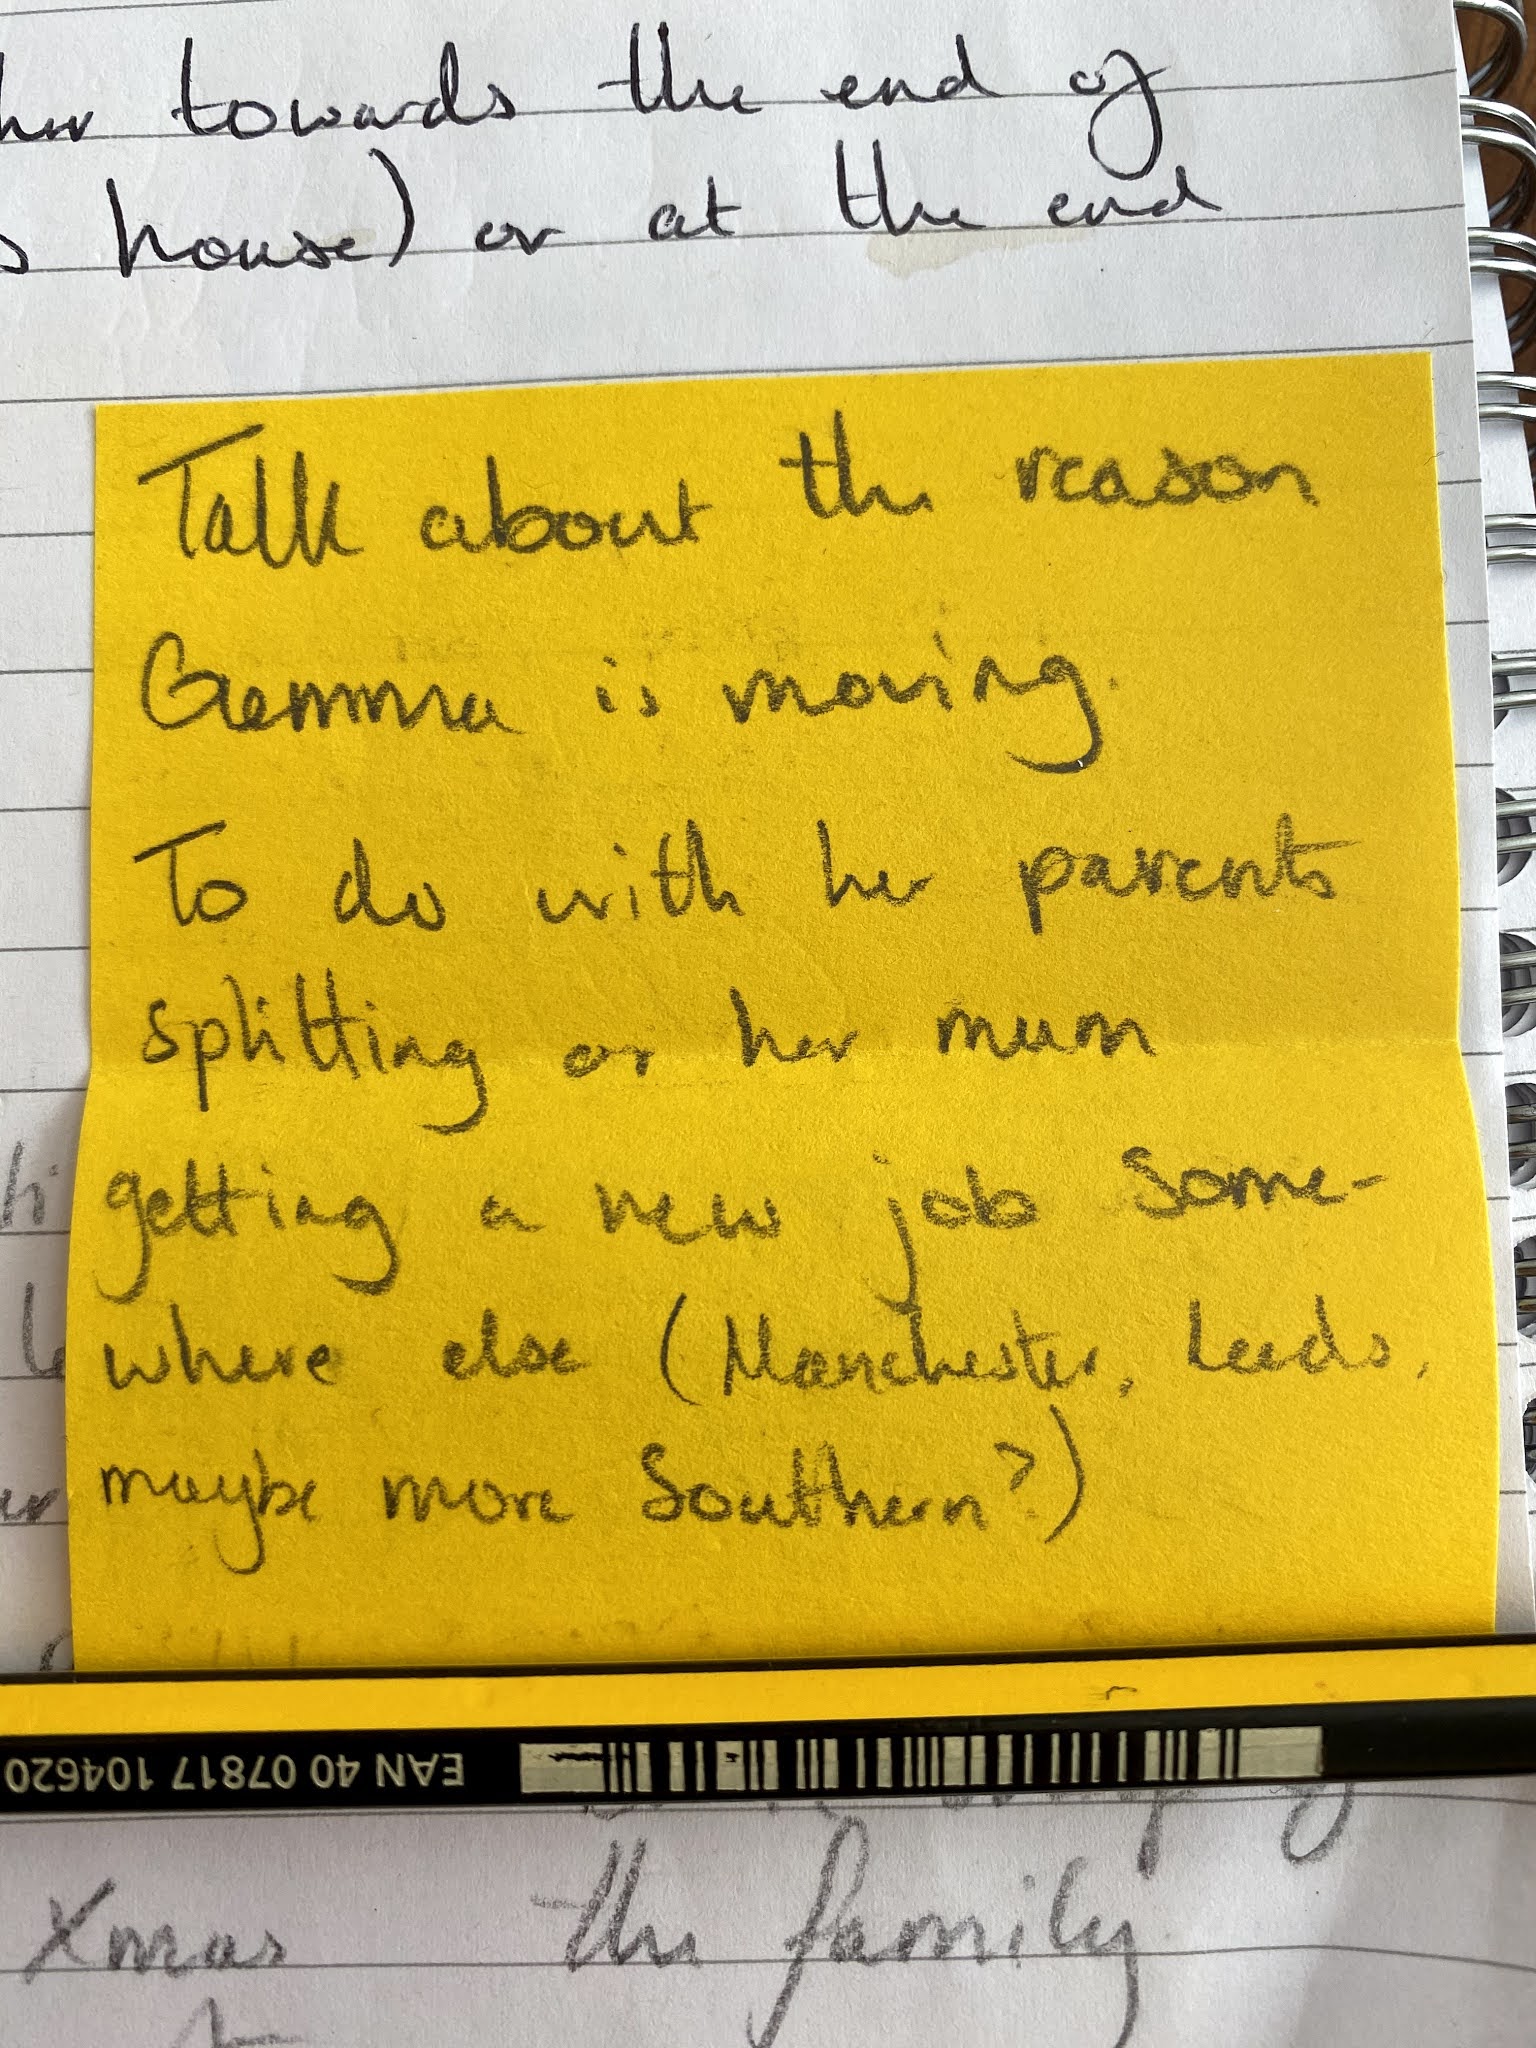 towards the end of
house) or at the end
Talk about the reason
Gemma is moving.
To do with her parents
splitting or her mum
getting a new job some-
where else (Manchester, Leeds,
maybe more Southern?)
EAN 40 07817 104620
Xmas the family